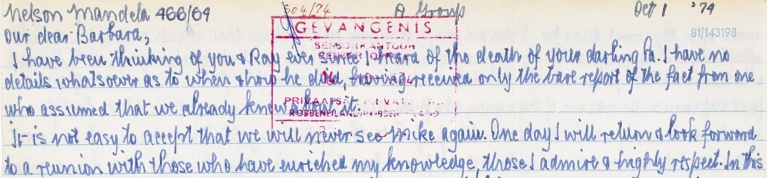 Nelson Mandela 466/64 A Group Oct 1 '74
504/74
81/143198
GEVANGENIS
SENSORKANTOOR
Our dear Barbara,
I have been thinking of you & Ray ever since I heard of the death of your darling Pa. I have no
details whatsoever as to when & how he died, having received only the bare report of the fact from one
who assumed that we already knew about it.
PRIVAATSAK
ROBBENEILAND
It is not easy to accept that we will never see Mike again. One day I will return & look forward
to a reunion with those who have enriched my knowledge, those I admire & highly respect. In this